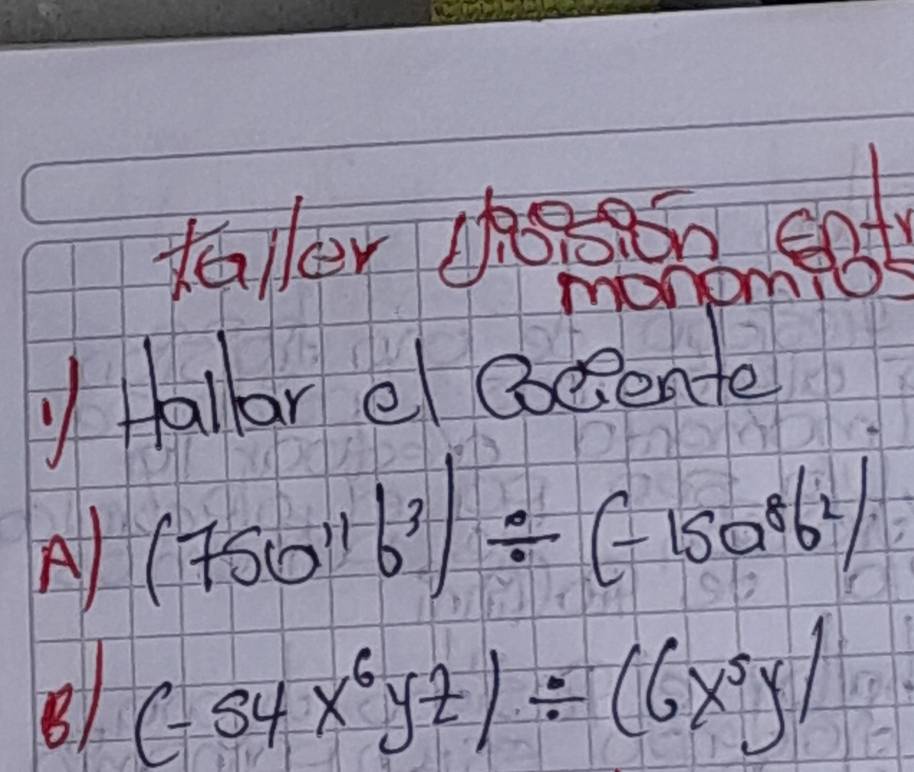 taller división entr
monomios
1) Hallar el Cociente
A) (75a¹¹b³) ÷ (-15a⁸b²)
B) (-54x⁶yz) ÷ (6x⁵y)